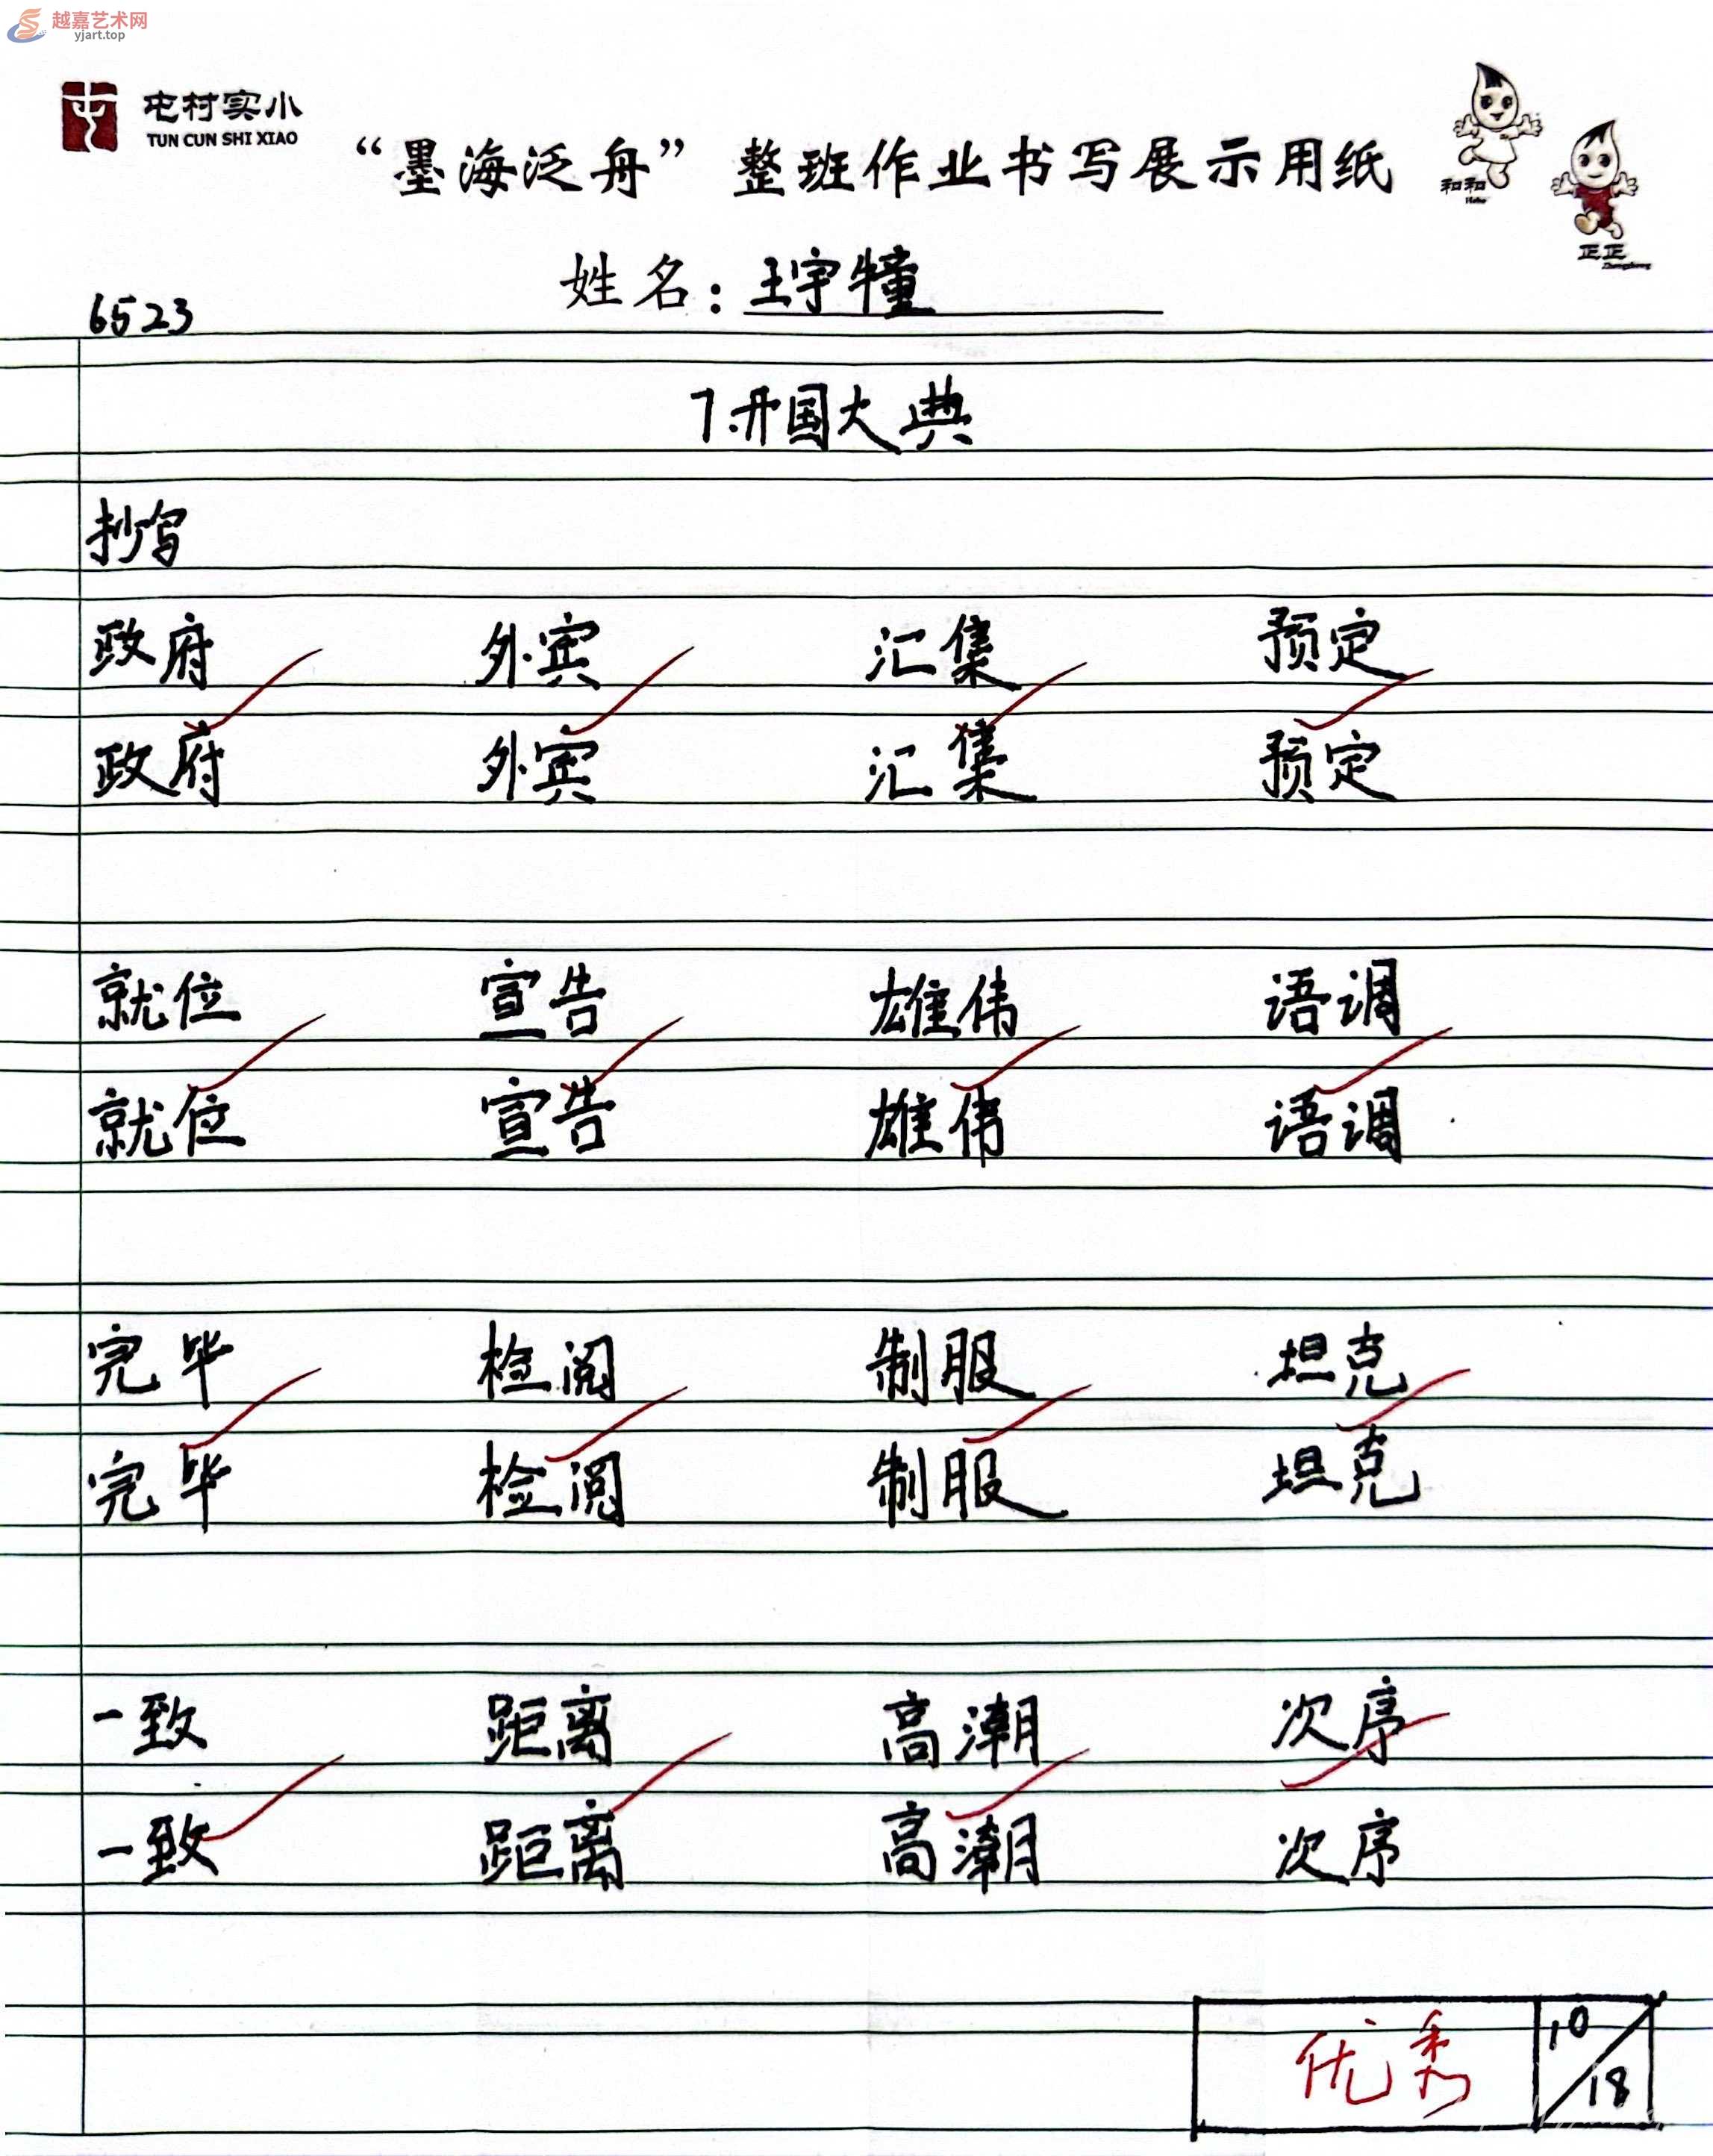 越嘉艺术网
yjart.top
屯村实小
TUN CUN SHI XIAO
“墨海泛舟”整班作业书写展示用纸
和和
Hehe
正正
Zhengzheng
姓名：王宇犝
6523
7.开国大典
抄写
政府 外宾 汇集 预定
政府 外宾 汇集 预定
就位 宣告 雄伟 语调
就位 宣告 雄伟 语调
完毕 检阅 制服 坦克
完毕 检阅 制服 坦克
一致 距离 高潮 次序
一致 距离 高潮 次序
优秀 10/18